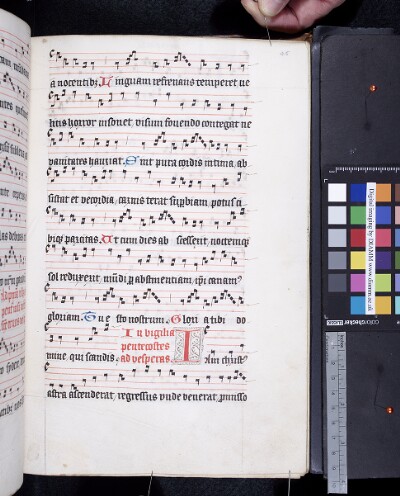 a nocentibꝫ Linguam refrenans temperet ne
litis horror insonet, visum fovendo contegat ne
vanitates hauriat. Sint pura cordis intima, ab
sistat et vecordia, carnis terat supbiam potus ci
biqꝫ parcitas. Ut cum dies ab scesserit, noctemqꝫ
sol reduxerit, mūdi p abstinentiam, ipi canam9
gloriam. Sit nostrum. Gloria tibi do
In vigilia
penthecostes
mine, qui scandis. ad vesperas. Iam christ9
astra ascenderat, regressus vnde venerat, pmisso
Digital imaging by DIAMM
www.diamm.ac.uk
colorchecker